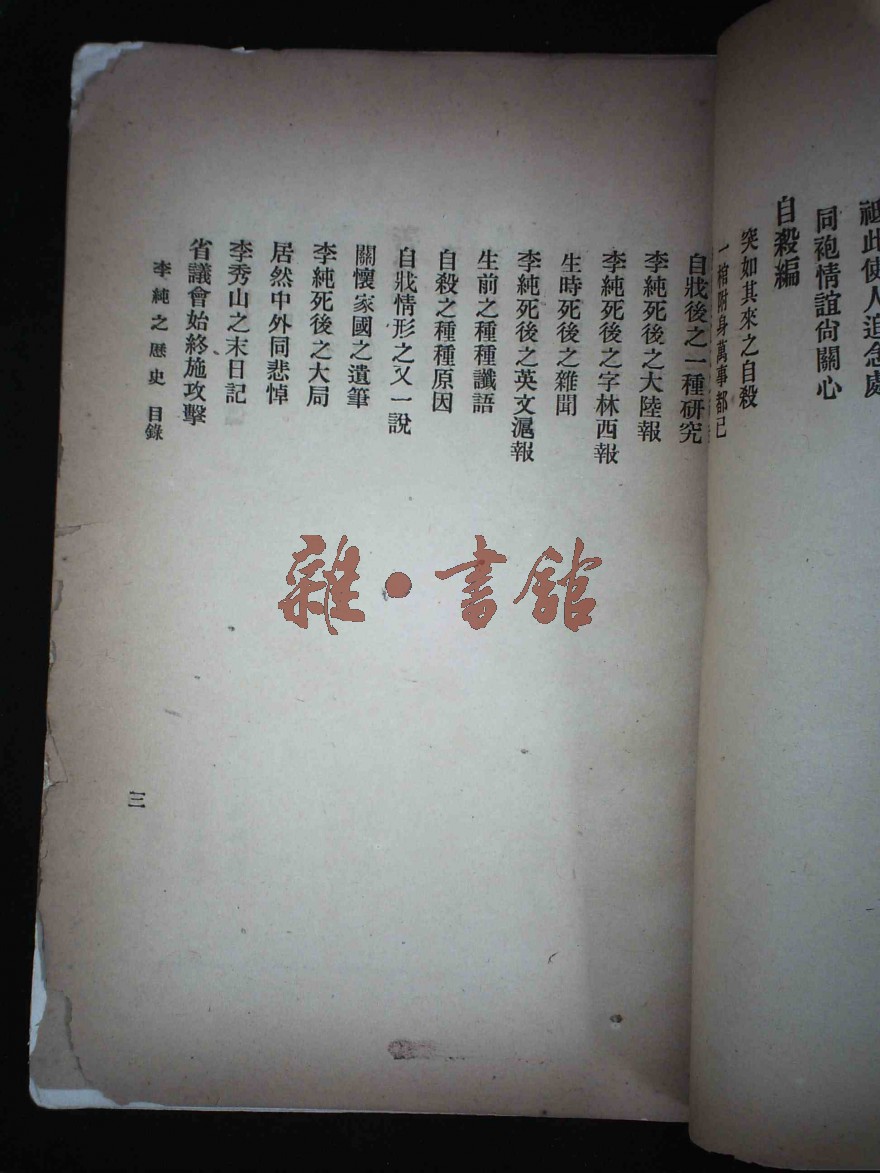 同袍情誼尙關心
自殺編
突如其來之自殺
一棺附身萬事都已
自戕後之一種研究
李純死後之大陸報
李純死後之字林西報
生時死後之雜聞
李純死後之英文滬報
生前之種種讖語
自殺之種種原因
自戕情形之又一說
關懷家國之遺筆
李純死後之大局
居然中外同悲悼
李秀山之末日記
省議會始終施攻擊
李純之歷史 目錄
三
雜·書館